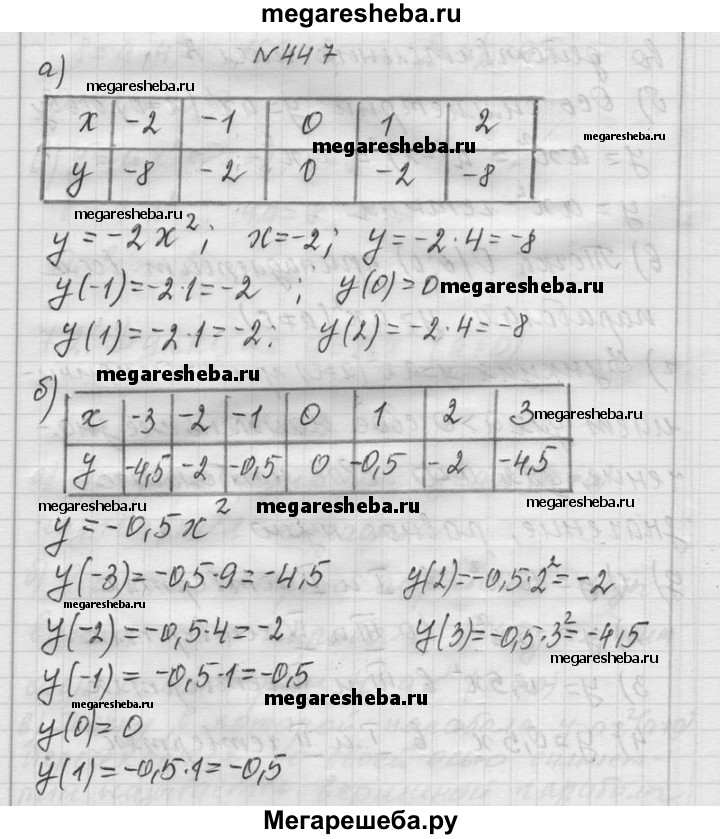 megaresheba.ru
N447
а)
megaresheba.ru
x -2 -1 0 1 2
megaresheba.ru
megaresheba.ru
y -8 -2 0 -2 -8
megaresheba.ru
y = -2x²; x=-2; y=-2·4=-8
y(-1)=-2·1=-2; y(0)=0
megaresheba.ru
y(1)=-2·1=-2; y(2)=-2·4=-8
megaresheba.ru
б)
x -3 -2 -1 0 1 2 3
megaresheba.ru
y -4,5 -2 -0,5 0 -0,5 -2 -4,5
megaresheba.ru
megaresheba.ru
megaresheba.ru
y=-0,5x²
y(-3)=-0,5·9=-4,5 y(2)=-0,5·2²=-2
megaresheba.ru
y(-2)=-0,5·4=-2 y(3)=-0,5·3²=-4,5
megaresheba.ru
y(-1)= -0,5·1=-0,5
megaresheba.ru
megaresheba.ru
y(0)=0
y(1)=-0,5·1=-0,5
Мегарешеба.ру